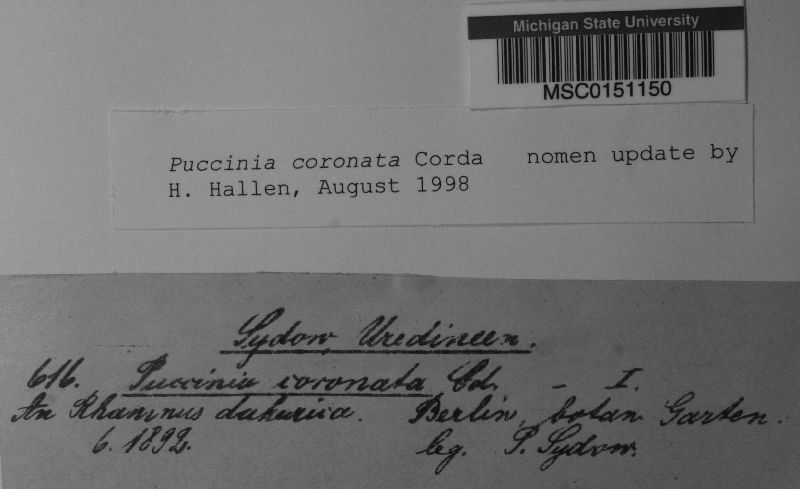 Michigan State University
MSC0151150
Puccinia coronata Corda nomen update by
H. Hallen, August 1998
Sydow, Uredineen.
616. Puccinia coronata Cd. - I.
An Rhamnus dahurica. Berlin, botan. Garten.
6. 1892. leg. P. Sydow.